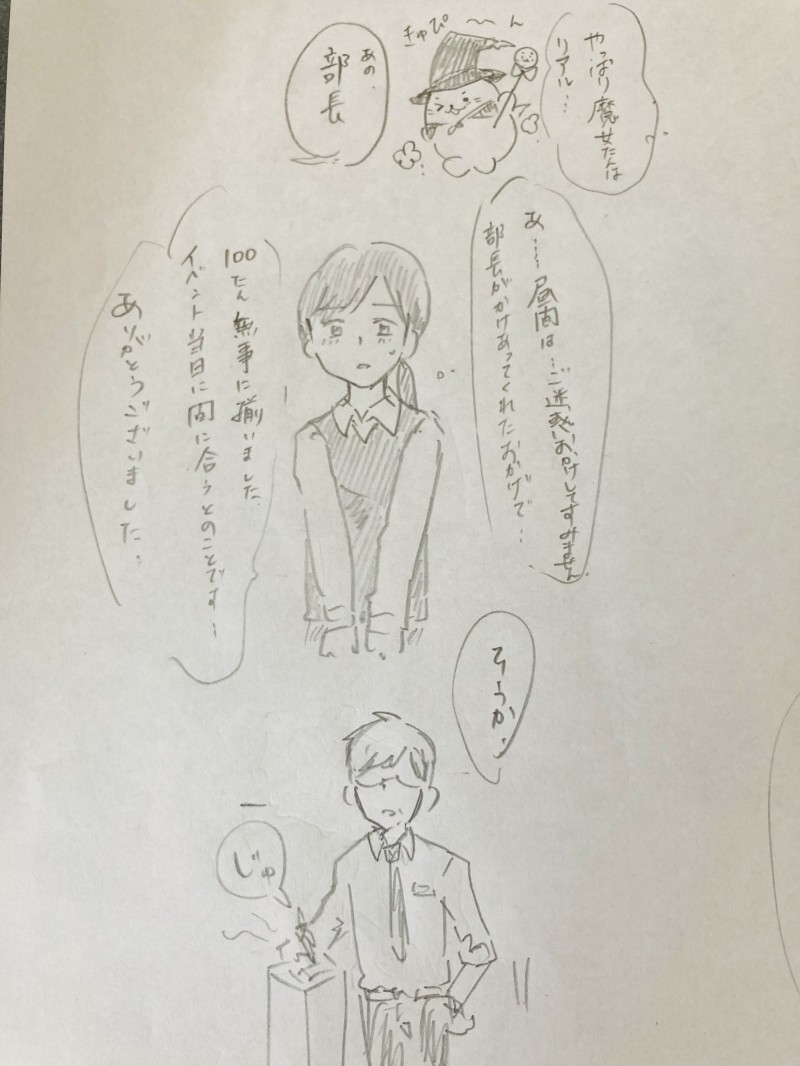 やっぱり魔女たんは
リアル…
きゅぴ〜ん
あの、
部長
あ……昼間は…ご迷惑おかけしてすみません
部長がかけあってくれたおかげで…
100たん無事に揃いました
イベント当日に間に合うとのことです…
ありがとうございました.
そうか.
じゅ